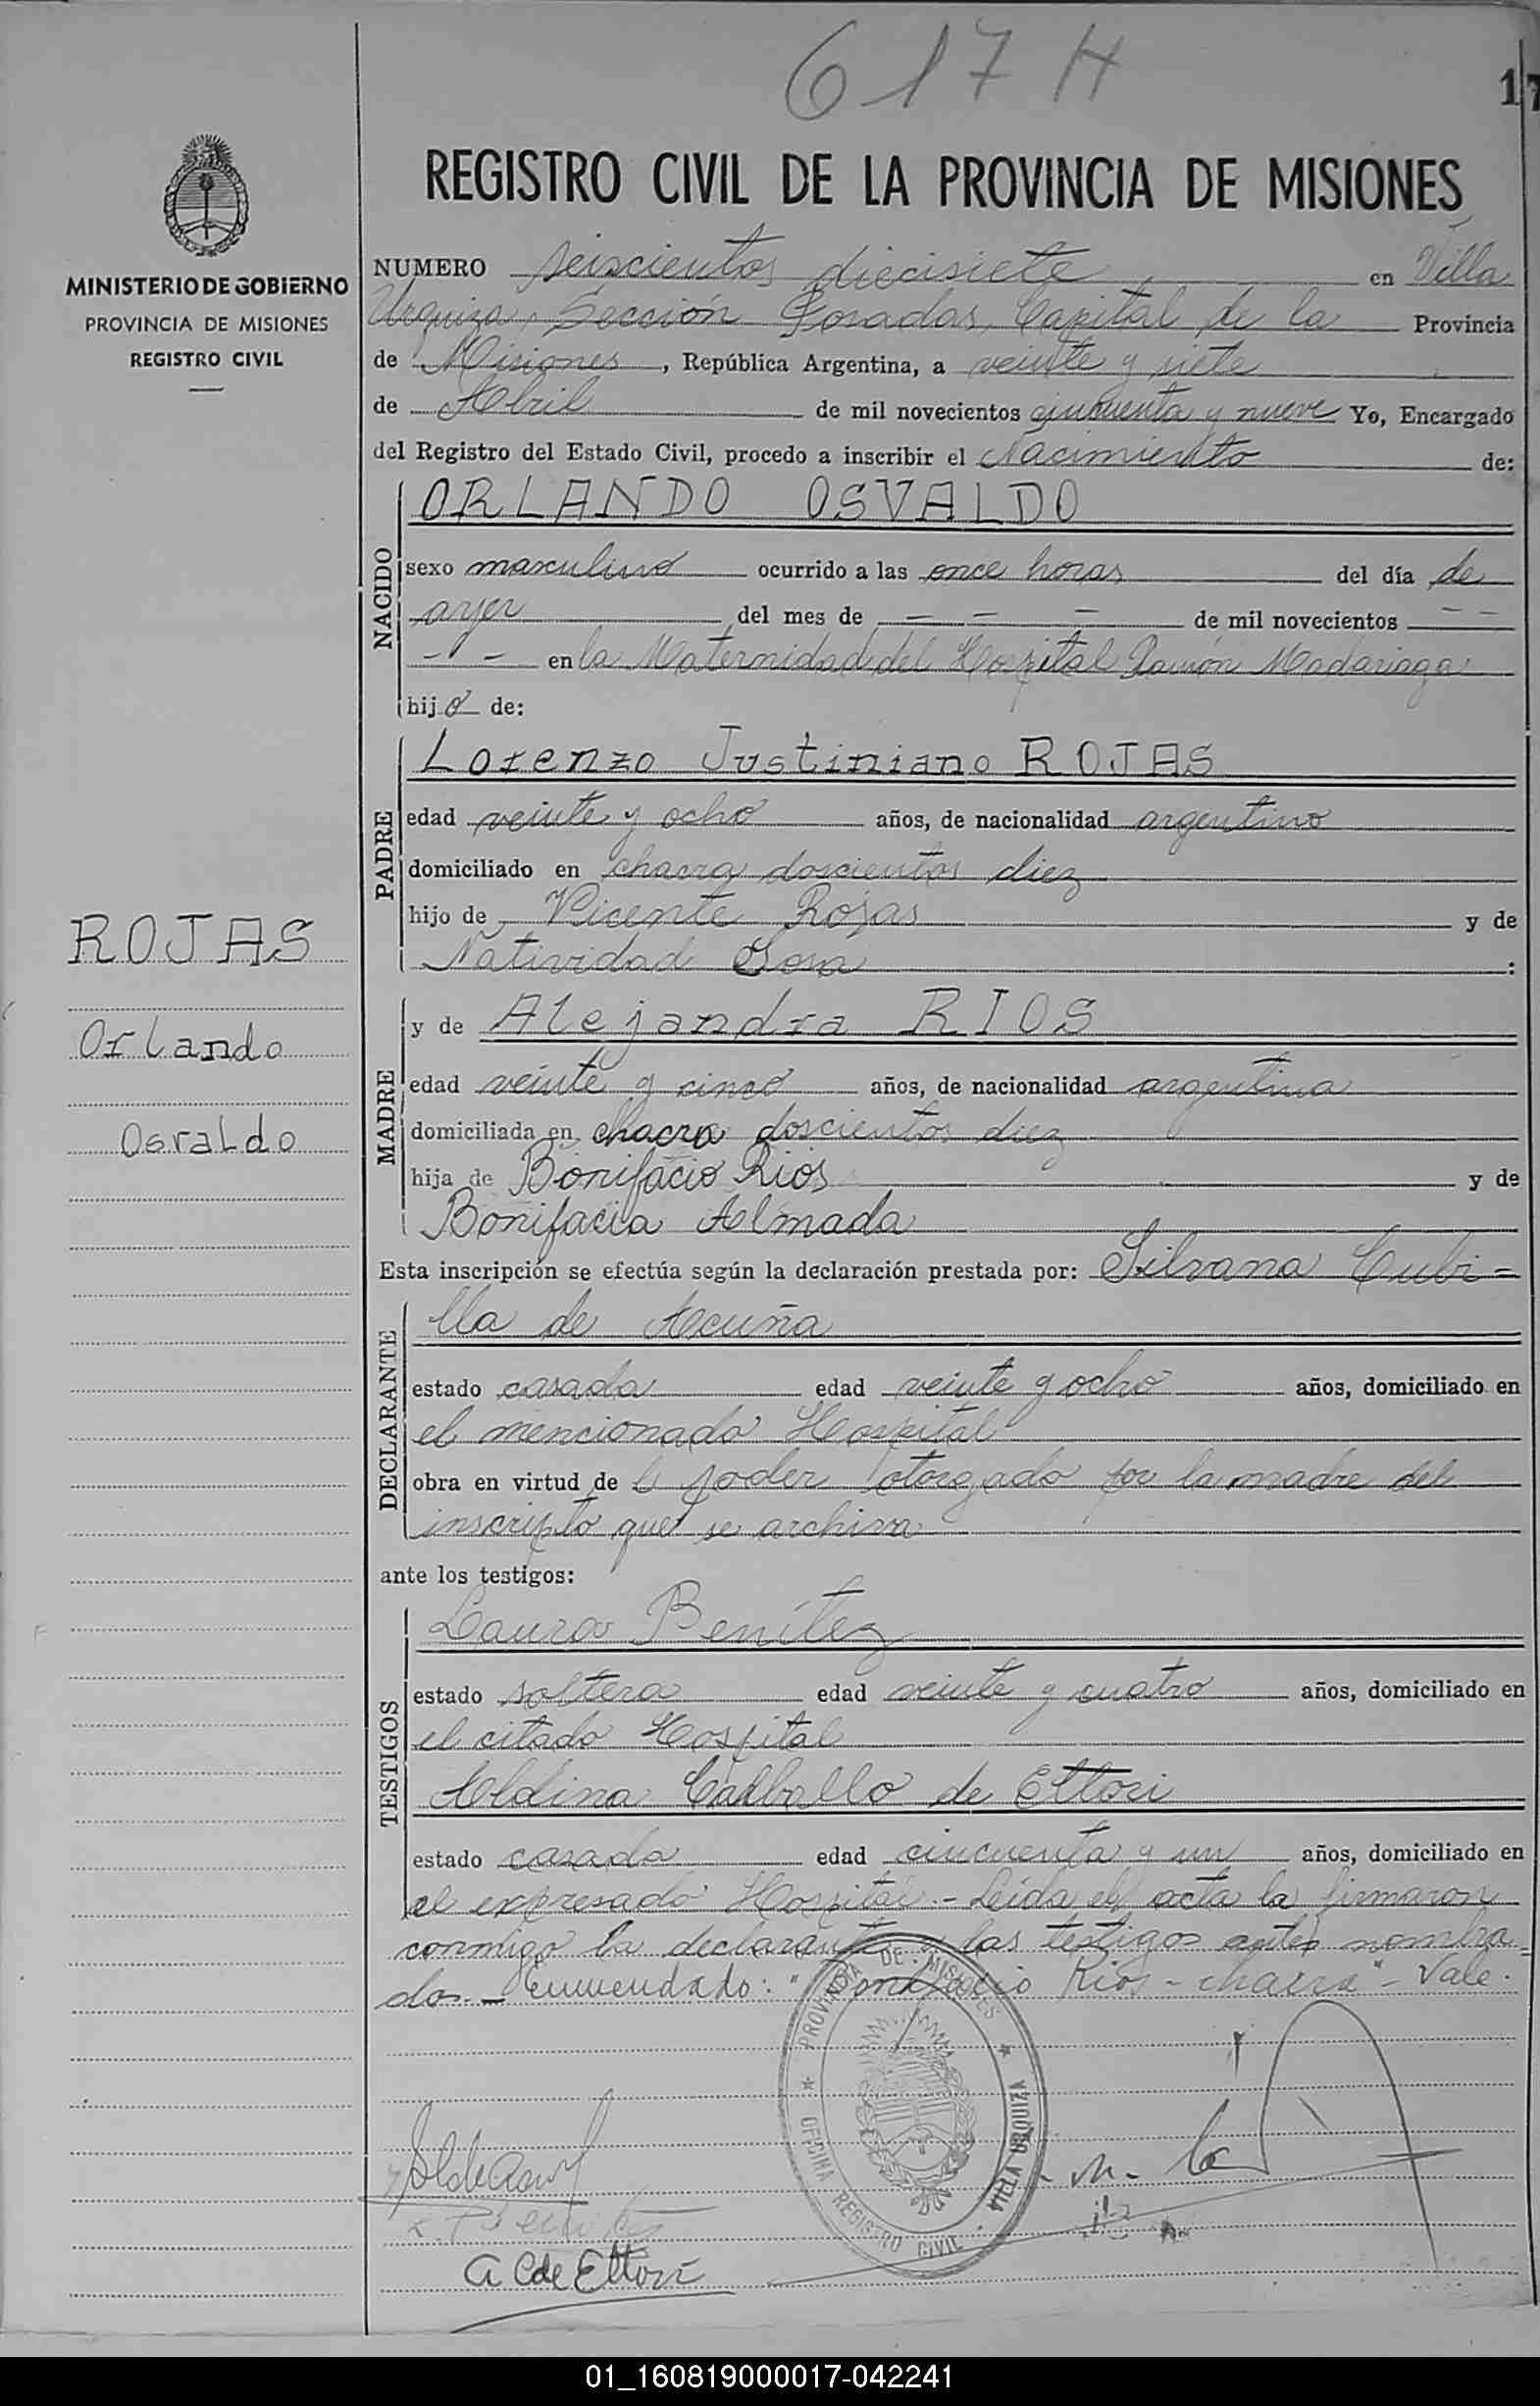 617 H
17
REGISTRO CIVIL DE LA PROVINCIA DE MISIONES
MINISTERIO DE GOBIERNO
PROVINCIA DE MISIONES
REGISTRO CIVIL
NUMERO seiscientos diecisiete en Villa
Urquiza, Sección Posadas, Capital de la Provincia
de Misiones, República Argentina, a veinte y siete
de Abril de mil novecientos cincuenta y nueve Yo, Encargado
del Registro del Estado Civil, procedo a inscribir el Nacimiento de:
NACIDO
ORLANDO OSVALDO
sexo masculino ocurrido a las once horas del día de
ayer del mes de - - - de mil novecientos - -
- - en la Maternidad del Hospital Ramón Madariaga
hijo de:
PADRE
Lorenzo Justiniano ROJAS
edad veinte y ocho años, de nacionalidad argentino
domiciliado en chacra doscientos diez
hijo de Vicente Rojas y de
Natividad Sosa :
ROJAS
Orlando
Osvaldo
MADRE
y de Alejandra RIOS
edad veinte y cinco años, de nacionalidad argentina
domiciliada en chacra doscientos diez
hija de Bonifacio Rios y de
Bonifacia Almada
Esta inscripción se efectúa según la declaración prestada por: Silvana Cubi=
DECLARANTE
lla de Acuña
estado casada edad veinte y ocho años, domiciliado en
el mencionado Hospital
obra en virtud de poder otorgado por la madre del
inscripto que se archiva
ante los testigos:
TESTIGOS
Laura Benítez
estado soltera edad veinte y cuatro años, domiciliado en
el citado Hospital
Aldina Carballo de Ettori
estado casada edad cincuenta y un años, domiciliado en
el expresado Hospital.- Leida el acta la firmaron
conmigo la declarante y las testigos antes nombra=
dos.- Enmendado: "Bonifacio Rios - chacra" - Vale.
PROVINCIA DE MISIONES
OFICINA REGISTRO CIVIL - VILLA URQUIZA
A C de Ettori
01_160819000017-042241